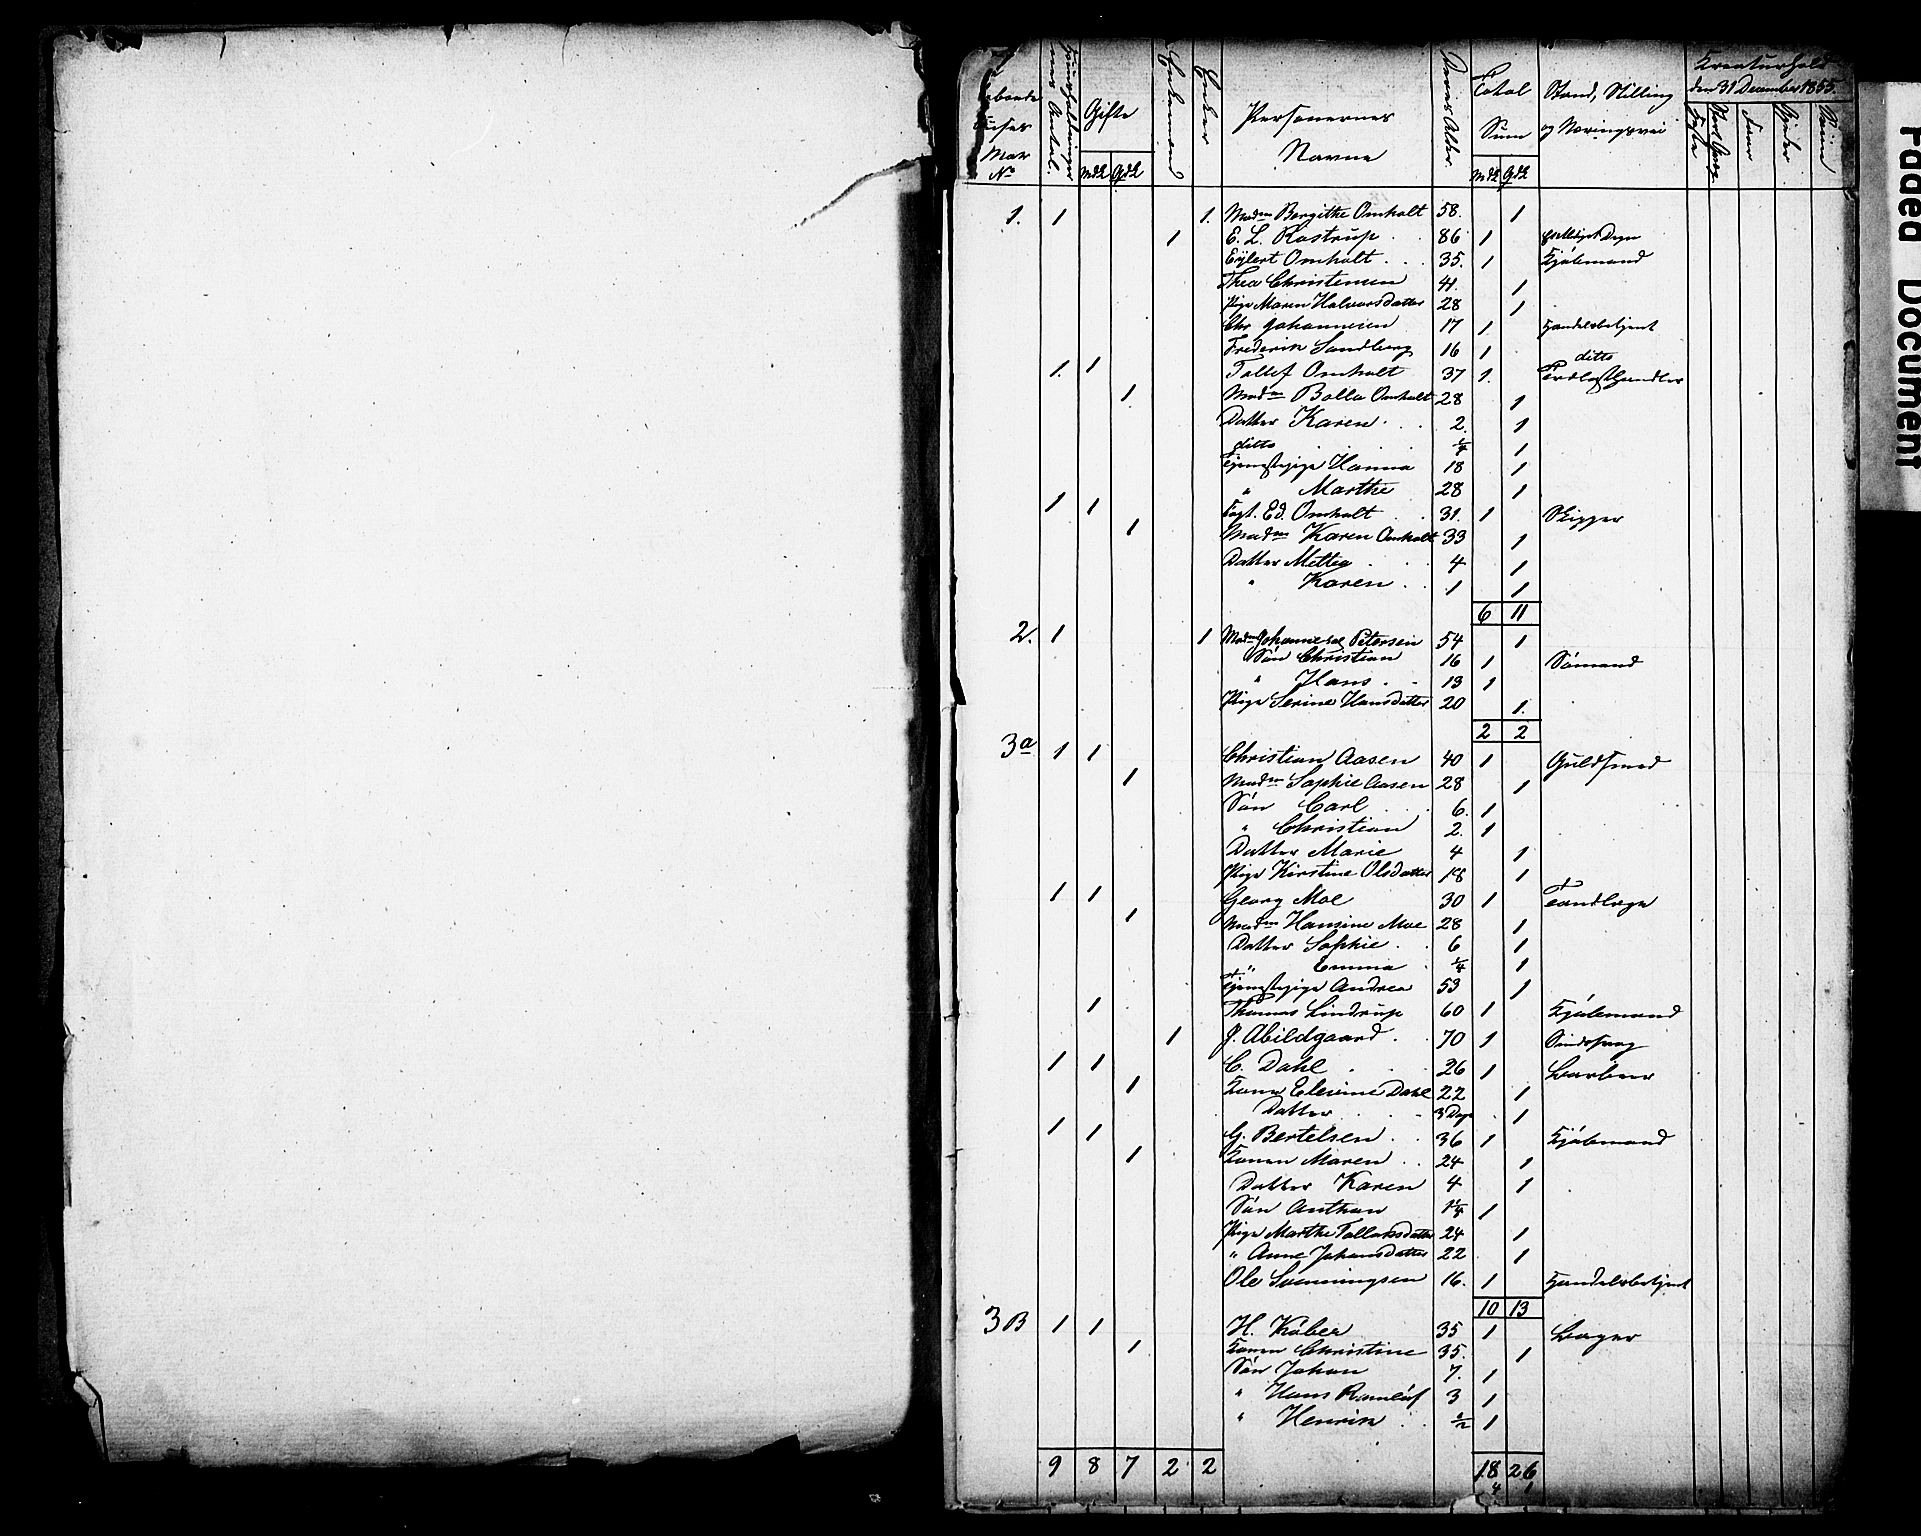 Faded Document
Huusholdninger nes Antal.
Gifte
Mdk Qdk
Enkemænd
Enker
Personernes
Navne
Deres Alder.
Total
Sum
Mdk Qdk
Stand, Stilling
og Næringsvei
Kreaturhold
den 31 December 1855.
Heste
Stort Qvæg.
Faar
Gjeder
Sviin
Matr
No
1. 1 1. Madm Bergithe Omholt 58. 1
1 E. L. Rostrup 86 1
Eylert Omholt 35. 1 Kjöbmand
Thea Christensen 41. 1
Pige Maren Halvorsdatter 28 1
Chr Johannesen 17 1 Handelsbetjent
Frederik Sandberg 16 1 ditto
1. 1 Tollef Omholt 37 1. Trælasthandler
1 Madm Bolla Omholt 28 1
Datter Karen 2. 1
ditto 1/4 1
Tjenestepige Hanna 18 1
" Marthe 28 1
1 1 Capt. Ed. Omholt 31. 1 Skipper
1 Madm Karen Omholt 33 1
Datter Mettea 4 1
" Karen 1 1
6 11
2. 1 1 Madm Johanne Petersen 54 1
Sön Christian 16 1 Sömand
" Hans 13 1
Pige Serine Hansdatter 20 1.
2 2
3a 1 1 Christian Aasen 40 1 Guldsmed
1 Madm Sophie Aasen 28 1
Sön Carl 6. 1
" Christian 2. 1
Datter Marie 4 1
Pige Kirstine Olsdatter 18 1
1 1 Georg Moe 30 1 Tandlæge
1 Madm Hansine Moe 28 1
Datter Sophie 6 1
" Emma 1/4 1
Tjenestepige Andrea 53 1
1 Thomas Lindrup 60 1 Kjöbmand
1 J. Abildgaard 70 1
1 1 C. Dahl 26 1 Barbeer
1 Kone Elesine Dahl 22 1
Datter 3 Dage 1
1 1 G. Bertelsen 36 1 Kjöbmand
1 Konen Maren 24 1
Datter Karen 4 1
Sön Anthon 1 1/4 1
Pige Marthe Tallaksdatter 24 1
" Anne Johansdatter 22 1
Ole Svenningsen 16. 1 Handelsbetjent
10 13
3B 1 1 H. Kaber 35 1 Bager
1 Konen Christine 35. 1
Sön Johan 7. 1
" Hans Ramlöf 3 1
" Henrik 1/2 1
9 8 7 2 2 18 26
4 1